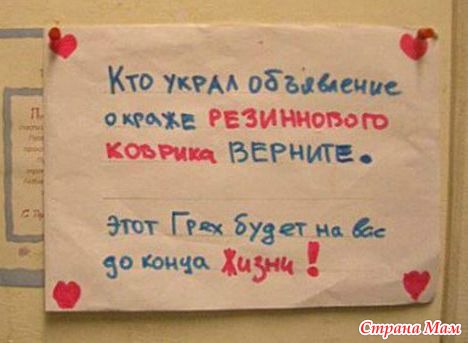 Кто украл объявление
о краже РЕЗИННОВОГО
КОВРИКА ВЕРНИТЕ.
этот Грех будет на вас
до конца Жизни!
Страна Мам